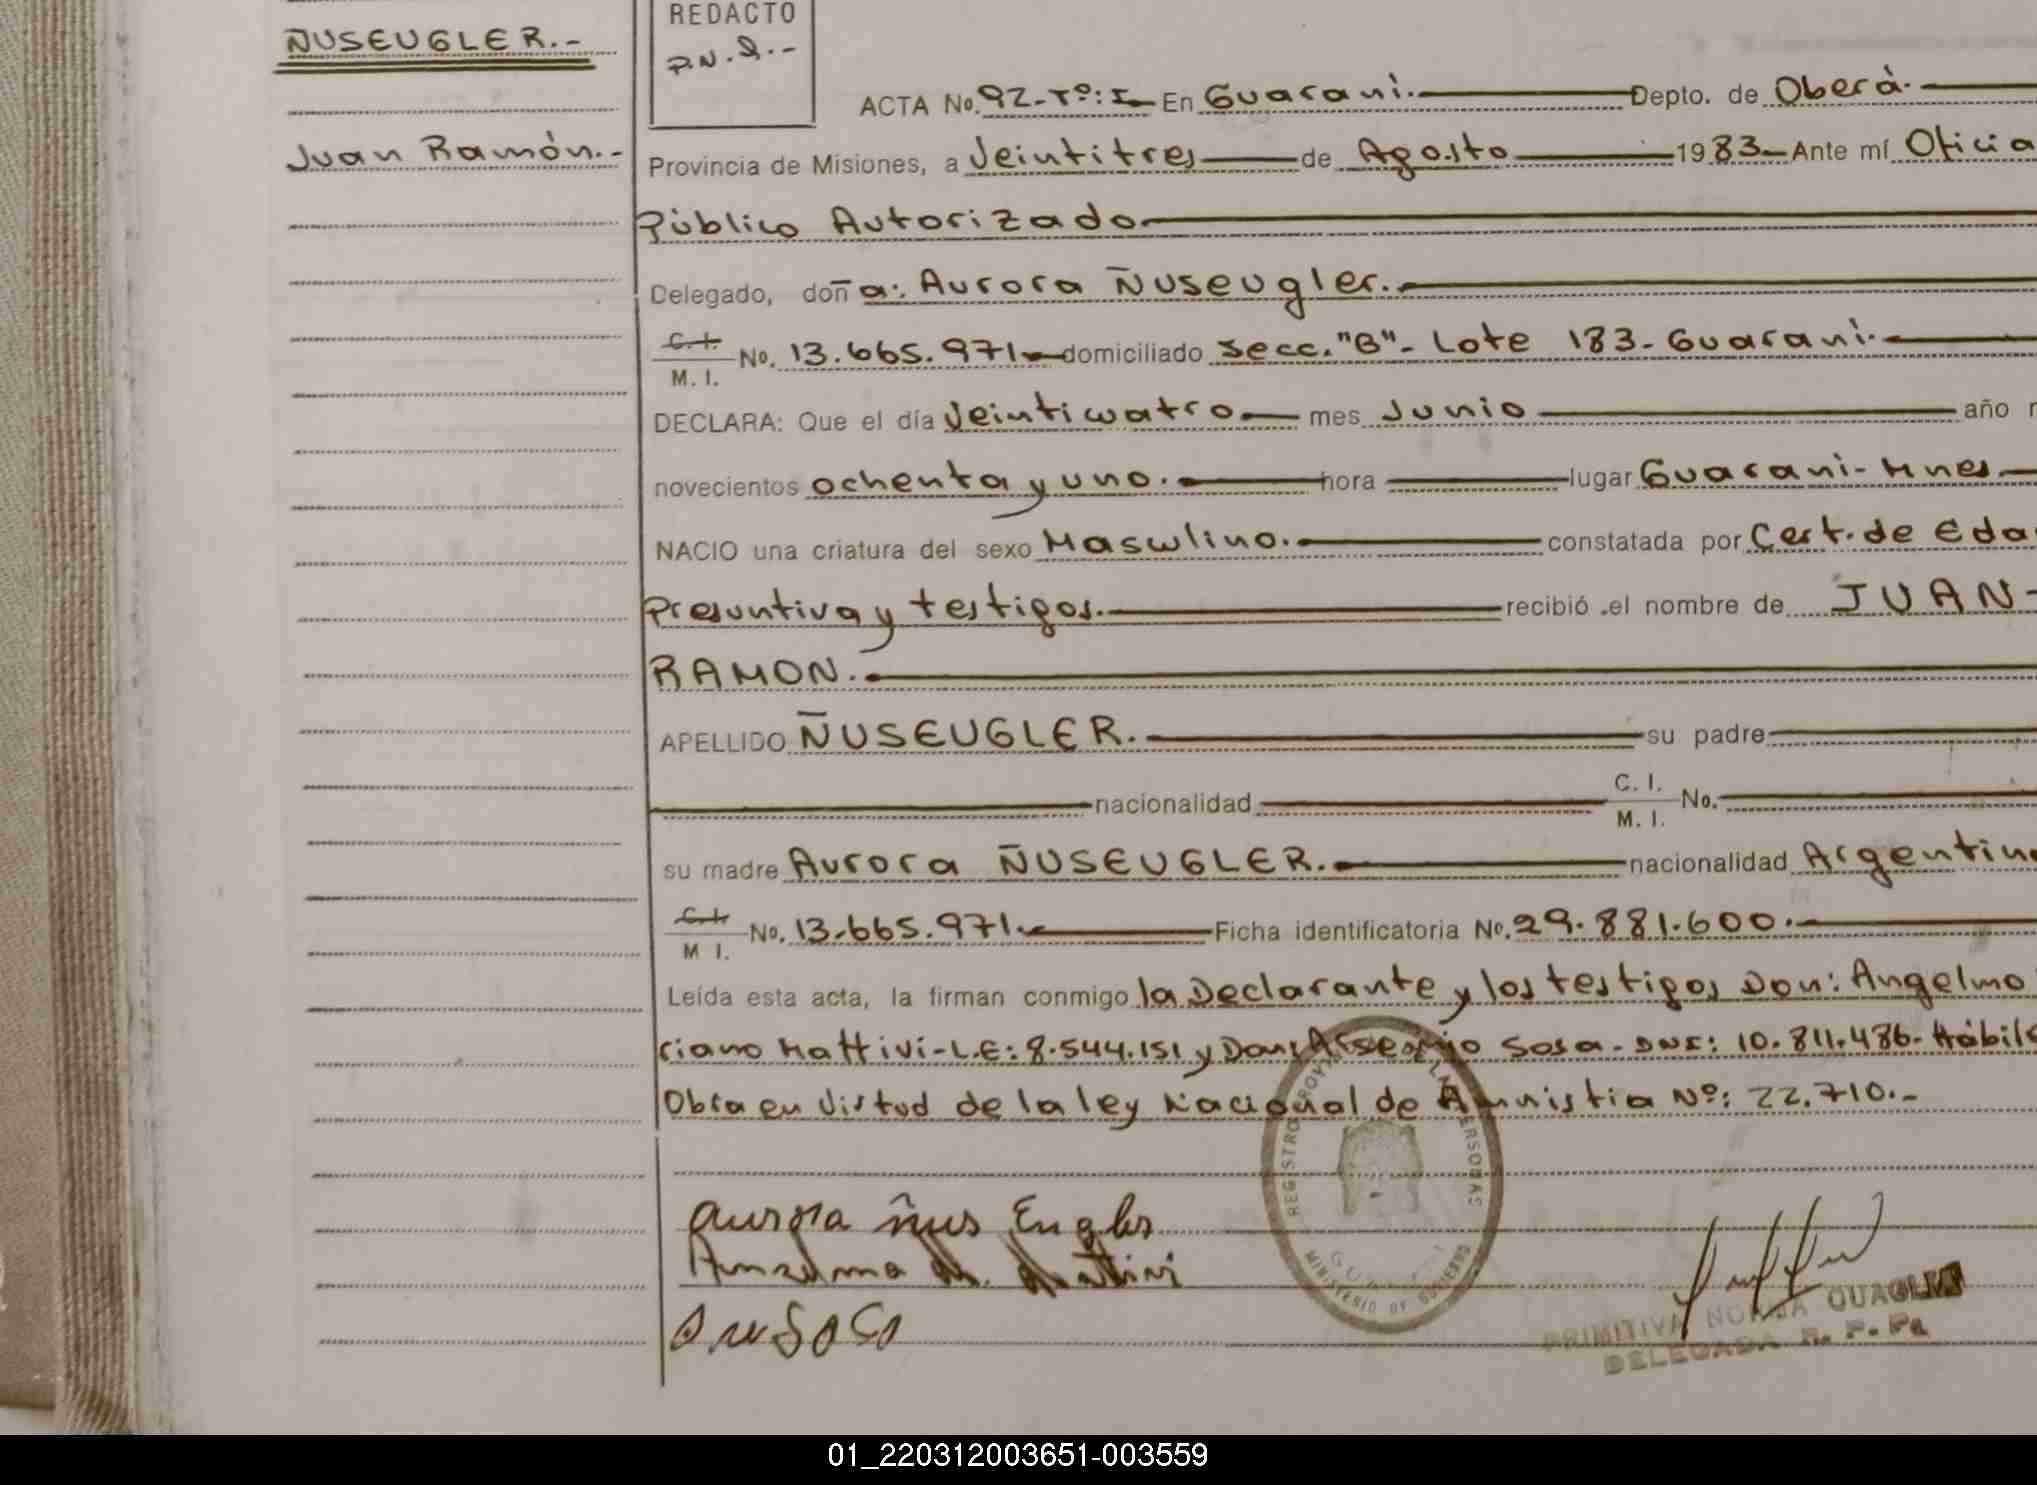 ÑUSEUGLER.-
Juan Ramón.-
REDACTO
P.N.Q.-
ACTA No. 92-Tº:I- En Guaraní. Depto. de Oberá.
Provincia de Misiones, a Veintitres de Agosto 1983 Ante mí Oficia
Público Autorizado
Delegado, doña: Aurora Ñuseugler.
C.I. M. I. No. 13.665.971.- domiciliado Secc. "B"- Lote 183- Guaraní.
DECLARA: Que el día Veinticuatro mes Junio año
novecientos ochenta y uno. hora lugar Guaraní- Mnes
NACIO una criatura del sexo Masculino. constatada por Cert. de Eda
Presuntiva y testigos. recibió el nombre de JUAN-
RAMON.
APELLIDO ÑUSEUGLER. su padre
nacionalidad C. I. M. I. No.
su madre Aurora ÑUSEUGLER. nacionalidad Argentin
C.I. M I. No. 13.665.971. Ficha identificatoria No. 29.881.600.
Leída esta acta, la firman conmigo la Declarante y los testigos Don: Angelmo
ciano Mattivi-L.E: 8.544.151 y Don: Arsenio Sosa- DNI: 10.811.486- Hábil
Obra en Virtud de la ley Nacional de Amnistia Nº: 22.710.-
Aurora ñus Eugler
REGISTRO PROV PERSONAS
MINISTERIO DE GOBIERNO
PRIMITIVA NORMA QUAGLIA
DELEGADA R. P. P.
01_220312003651-003559